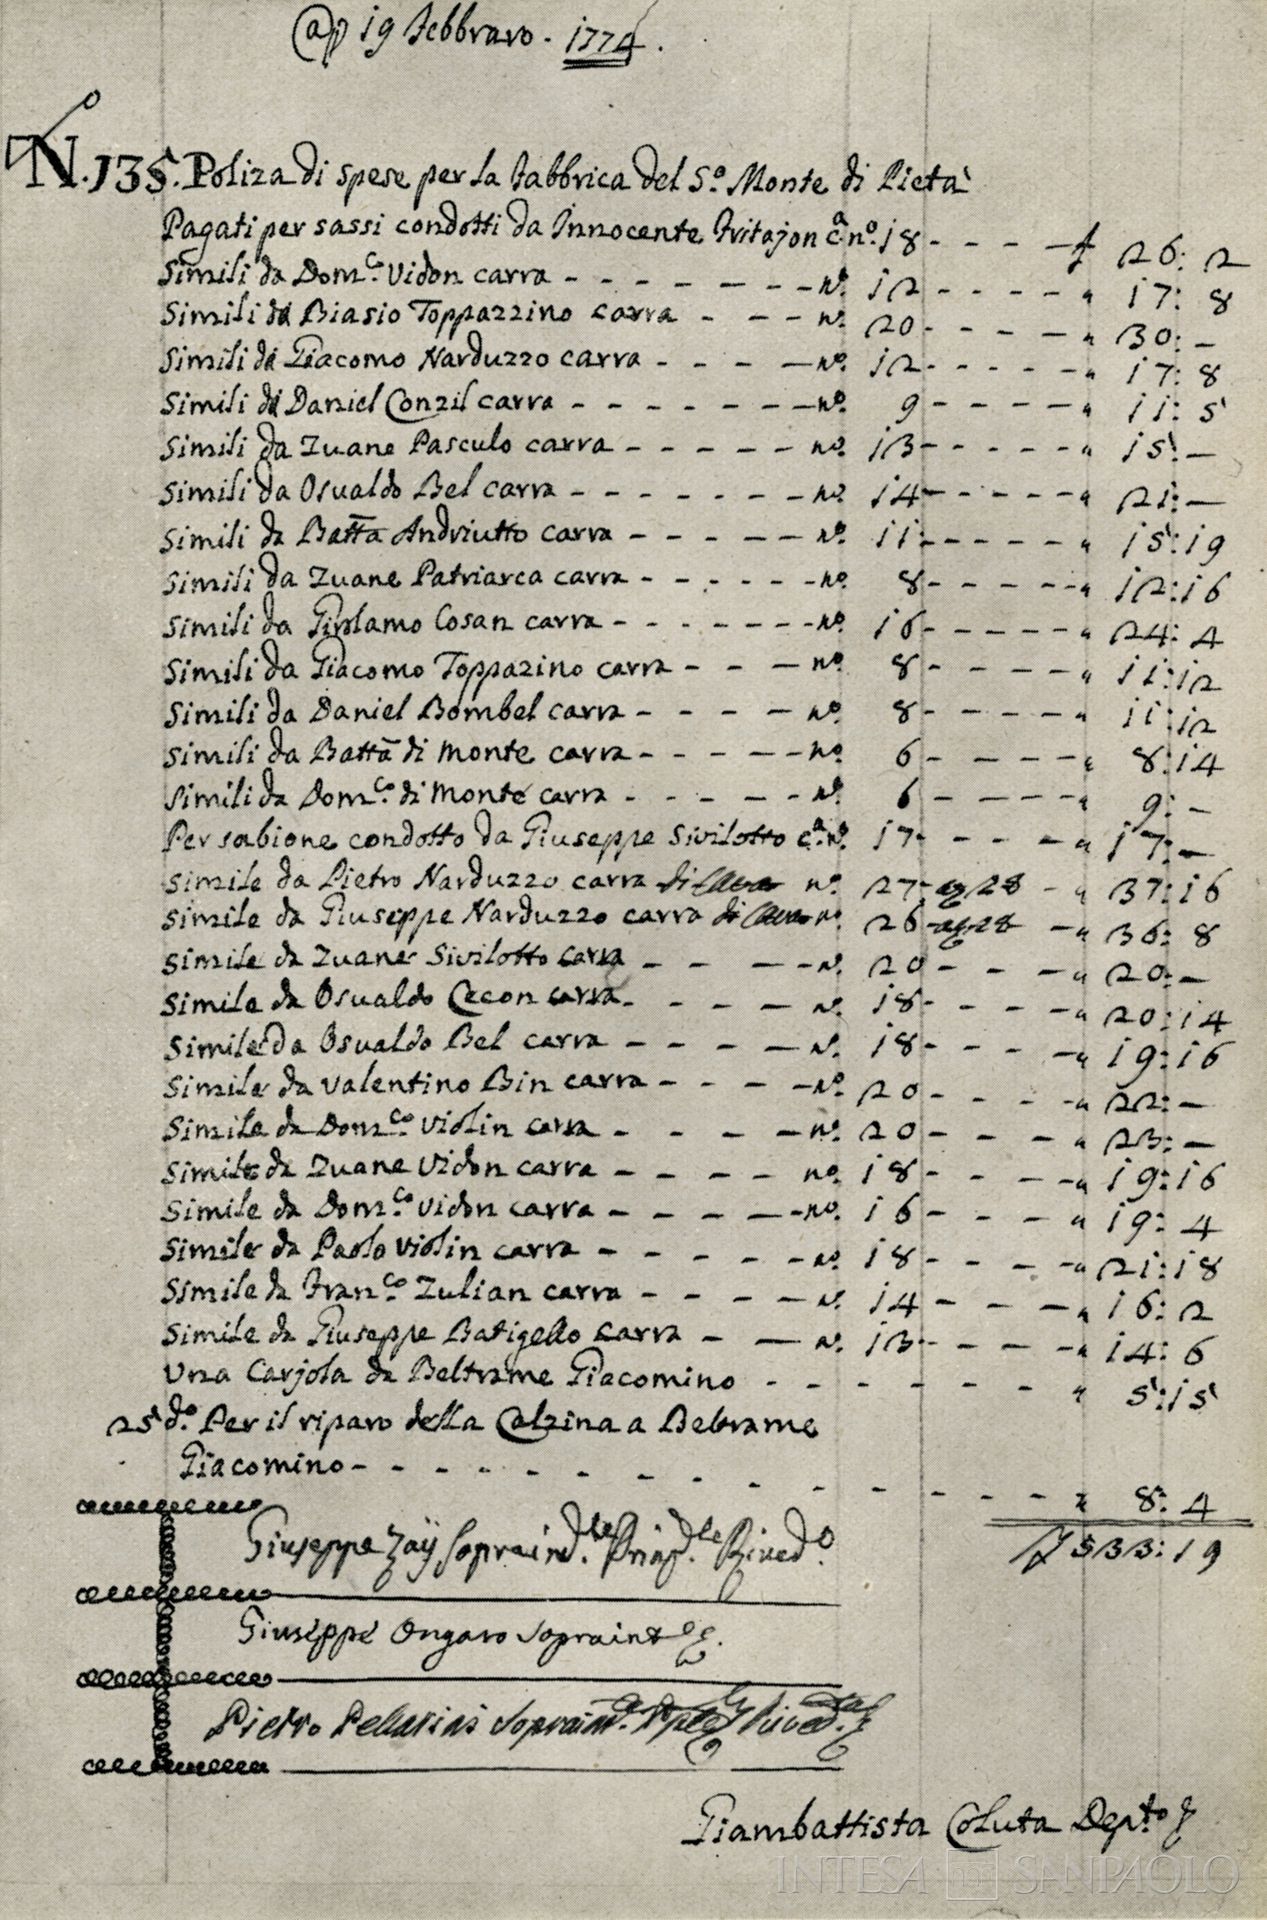 19 Febbraro. 1774.
N. 135. Poliza di spese per la Fabbrica del S.o Monte di Pietà
Pagati per sassi condotti da Innocente Fritajon c.a n.o 18 - - - - £ 26: 2
Simili da Dom.co Vidon carra - - - - - - - n.o 12 - - - - - " 17: 8
Simili di Biasio Toppazzino carra - - - n.o 20 - - - - - " 30: -
Simili di Giacomo Narduzzo carra - - - - n.o 12 - - - - - " 17: 8
Simili di Daniel Conzil carra - - - - - - - n.o 9 - - - - - " 11: 5
Simili da Zuane Pasculo carra - - - - - - n.o 13 - - - - - " 15: -
Simili da Osualdo Bel carra - - - - - - - n.o 14 - - - - - " 21: -
Simili da Batta Andriutto carra - - - - - - n.o 11 - - - - - " 15: 19
Simili da Zuane Patriarca carra - - - - - - n.o 8 - - - - - " 12: 16
Simili da Girolamo Cosan carra - - - - - - - n.o 16 - - - - - " 24: 4
Simili da Giacomo Toppazino carra - - - - n.o 8 - - - - - " 11: 12
Simili da Daniel Bombel carra - - - - - n.o 8 - - - - - " 11: 12
Simili da Batta di Monte carra - - - - - n.o 6 - - - - - " 8: 14
Simili da Dom.co di Monte carra - - - - - n.o 6 - - - - " 9: -
Per sabione condotto da Giuseppe Sivilotto c.a n.o 17 - - - - " 17: -
Simile da Pietro Narduzzo carra di Cava n.o 27 28 - " 37: 16
Simile da Giuseppe Narduzzo carra di Cava n.o 26 28 - " 36: 8
Simile da Zuane Sivilotto carra - - - - n.o 20 - - - - " 20: -
Simile da Osualdo Cecon carra - - - - - n.o 18 - - - - " 20: 14
Simile da Osualdo Bel carra - - - - - n.o 18 - - - - " 19: 16
Simile da Valentino Bin carra - - - - n.o 20 - - - - " 22: -
Simile da Dom.co Violin carra - - - - - n.o 20 - - - - " 23: -
Simile da Zuane Vidon carra - - - - n.o 18 - - - - " 19: 16
Simile da Dom.co Vidon carra - - - - - n.o 16 - - - - " 19: 4
Simile da Paolo Violin carra - - - - - n.o 18 - - - - " 21: 18
Simile da Fran.co Zulian carra - - - - - n.o 14 - - - - " 16: 2
Simile da Giuseppe Batigello carra - - n.o 13 - - - - " 14: 6
Una Carjola da Beltrame Giacomino - - - - - - - " 5: 15
25 d.o Per il riparo della Calzina a Beltrame
Giacomino - - - - - - - - - - - - " 8: 4
£ 533: 19
Giuseppe Zaij Sopraind.te
Giuseppe Ongaro Sopraint
Pietro Pellarini Sopraind.
Giambattista Coluta Dep.to
INTESA SANPAOLO